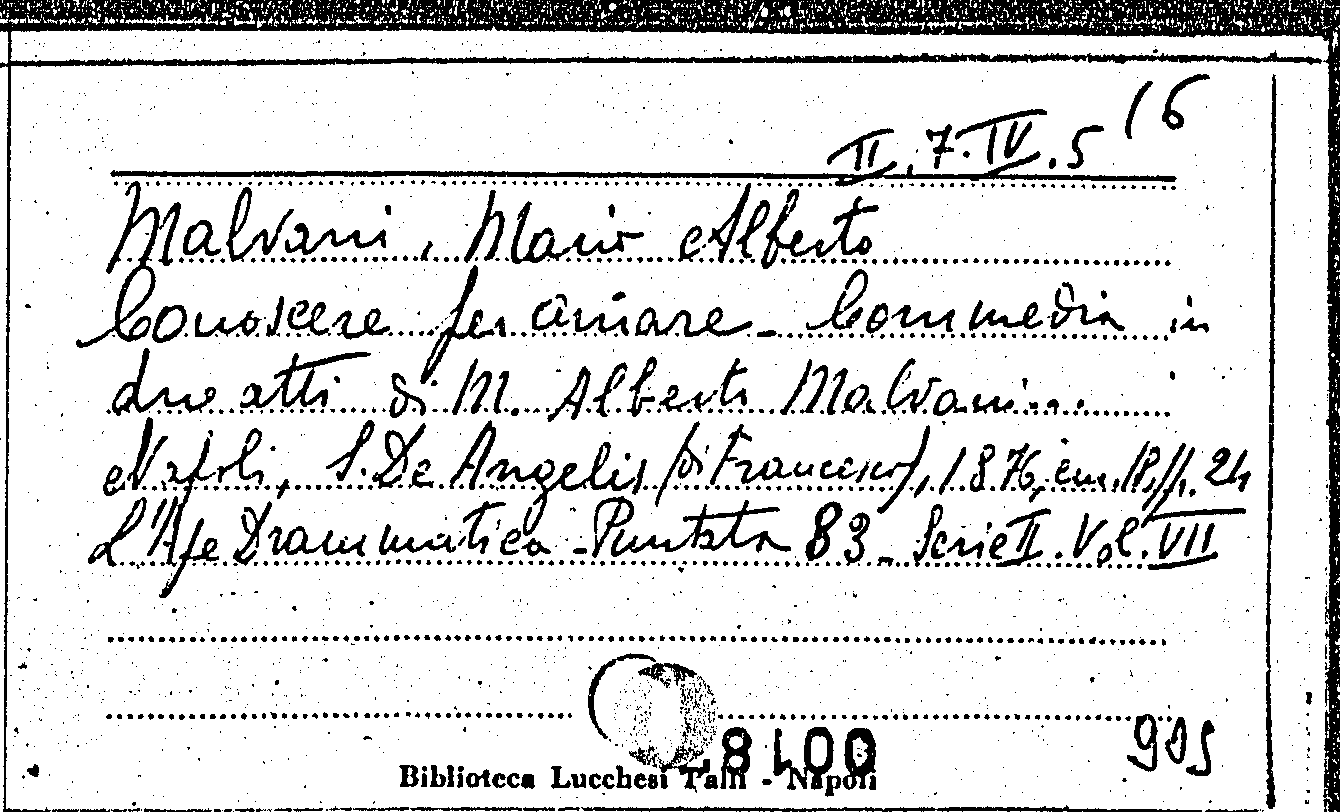 II.7.IV.5 (6
Malvani, Mario Alberto
Conoscere per amare - Commedia in
due atti di M. Alberto Malvani...
Napoli, S. De Angelis (di Francesco), 1876, cm. 18, pp. 24
L'Ape Drammatica - Puntata 83 - Serie II. Vol. VII
Biblioteca Lucchesi Palli - Napoli